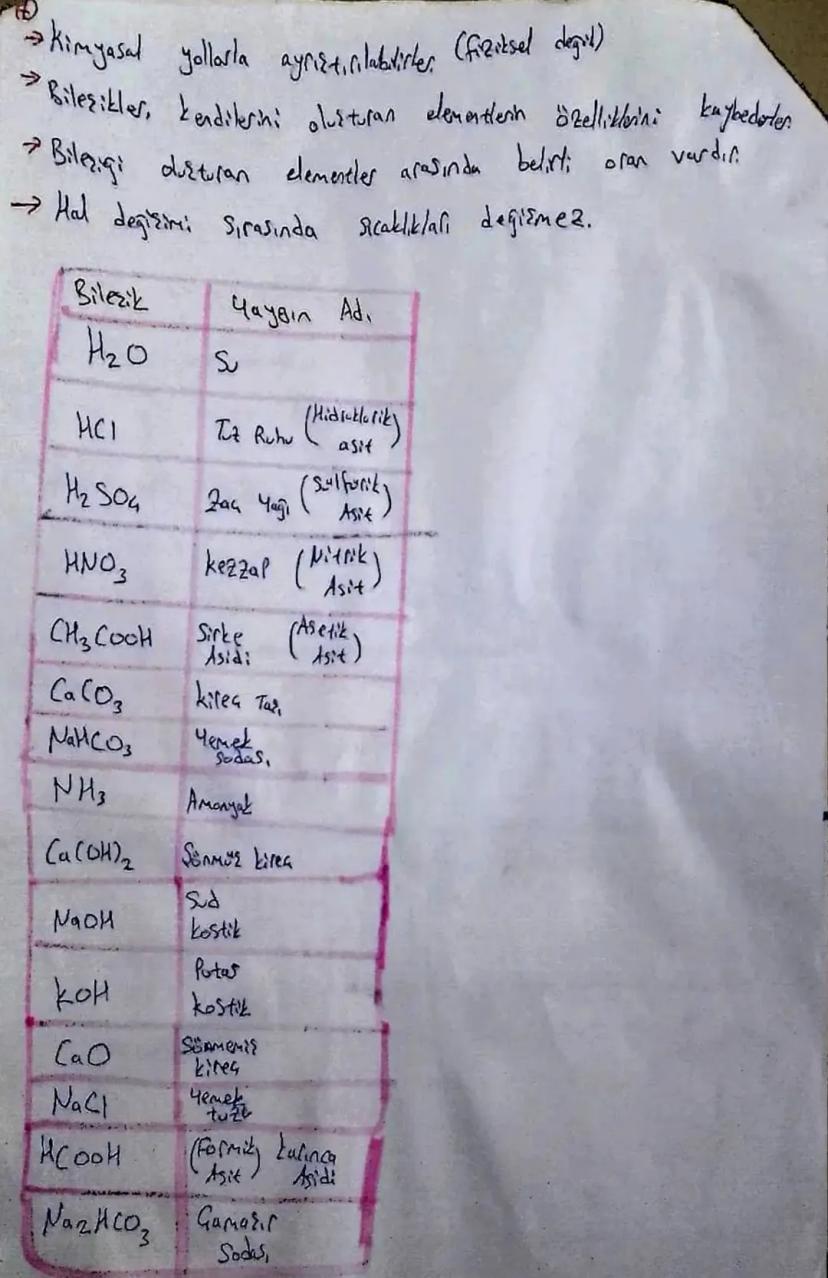 → Kimyasal yollarla ayrıştırılabilirler. (fiziksel değil)
→ Bileşikler, kendilerini oluşturan elementlerin özelliklerini kaybederler.
→ Bileşiği oluşturan elementler arasında belirli oran vardır.
→ Hal değişimi sırasında sıcaklıkları değişmez.
Bileşik Yaygın Adı
H₂O Su
HCl Tuz Ruhu (Hidroklorik asit)
H₂SO₄ Zaç Yağı (Sülfürik Asit)
HNO₃ Kezzap (Nitrik Asit)
CH₃COOH Sirke Asidi (Asetik Asit)
CaCO₃ Kireç Taşı
NaHCO₃ Yemek Sodası
NH₃ Amonyak
Ca(OH)₂ Sönmüş kireç
NaOH Sud kostik
KOH Potas kostik
CaO Sönmemiş kireç
NaCl Yemek tuzu
HCOOH (Formik Asit) Karınca Asidi
Na₂HCO₃ Çamaşır Sodası